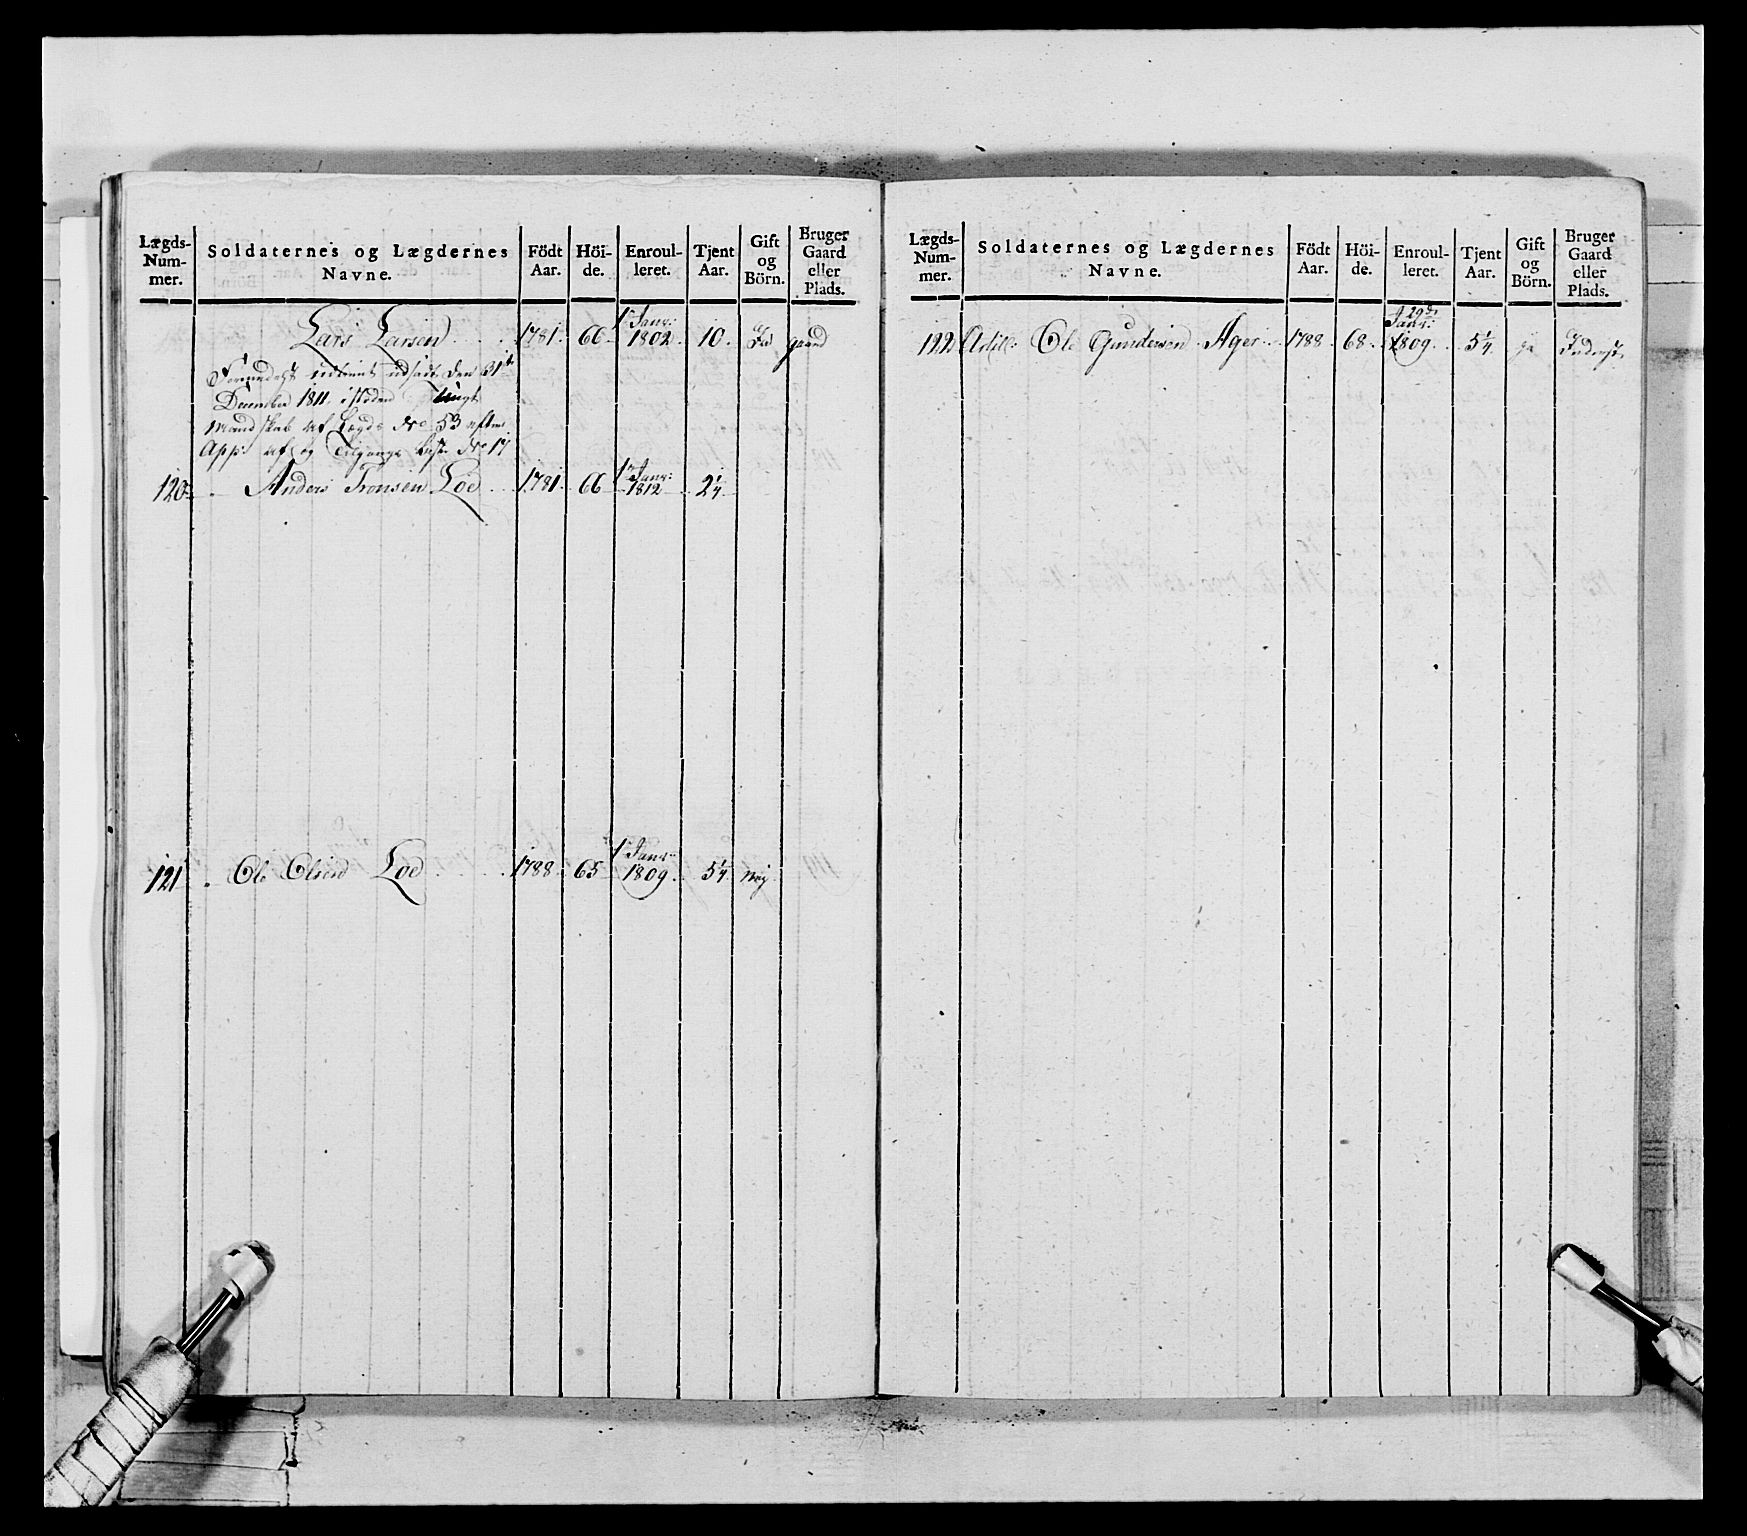 Lægds-Num-mer. Soldaternes og Lægdernes Navne. Födt Aar. Höi-de. Enroul-leret. Tjent Aar. Gift og Börn. Bruger Gaard eller Plads.
Lars Larsen 1781. 66 1 Janr: 1802. 10. Ja gaard
udsadt den 31te
December 1811 i steden
Mandskab af Lægd No 53 efter
App: af og Tilgangs List No 17
120 Anders Tronsen Loe 1781. 66 1 Janr: 1812 2 1/4
121 Ole Olsen Loe 1788 65 1 Janr: 1809. 5 1/4 Nej
Lægds-Num-mer. Soldaternes og Lægdernes Navne. Födt Aar. Höi-de. Enroul-leret. Tjent Aar. Gift og Börn. Bruger Gaard eller Plads.
122 Ole Gundersen Ager 1788 68 29de Janr: 1809. 5 1/4 ja Inderst